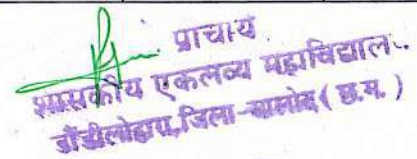 प्राचार्य
शासकीय एकलव्य महाविद्याल
डौंडीलोहारा, जिला-बालोद ( छ.ग. )